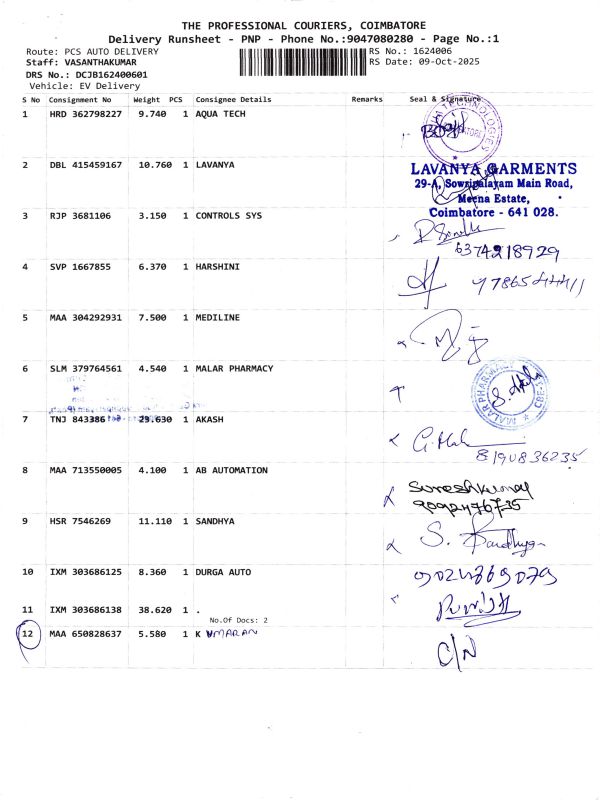 THE PROFESSIONAL COURIERS, COIMBATORE
Delivery Runsheet - PNP - Phone No.:9047080280 - Page No.:1
Route: PCS AUTO DELIVERY
RS No.: 1624006
Staff: VASANTHAKUMAR
RS Date: 09-Oct-2025
DRS No.: DCJB162400601
Vehicle: EV Delivery
S No Consignment No Weight PCS Consignee Details Remarks Seal & Signature
1 HRD 362798227 9.740 1 AQUA TECH
2 DBL 415459167 10.760 1 LAVANYA
LAVANYA GARMENTS
29-A, Sowripalayam Main Road,
Meena Estate,
Coimbatore - 641 028.
3 RJP 3681106 3.150 1 CONTROLS SYS
6374218929
4 SVP 1667855 6.370 1 HARSHINI
5 MAA 304292931 7.500 1 MEDILINE
6 SLM 379764561 4.540 1 MALAR PHARMACY
MALAR PHARMACY CBE
7 TNJ 843386 29.630 1 AKASH
8190836235
8 MAA 713550005 4.100 1 AB AUTOMATION
Sureshkumar
9092476735
9 HSR 7546269 11.110 1 SANDHYA
S. Sandhya
10 IXM 303686125 8.360 1 DURGA AUTO
11 IXM 303686138 38.620 1 .
No.Of Docs: 2
12 MAA 650828637 5.580 1 K UMARAN
C/N